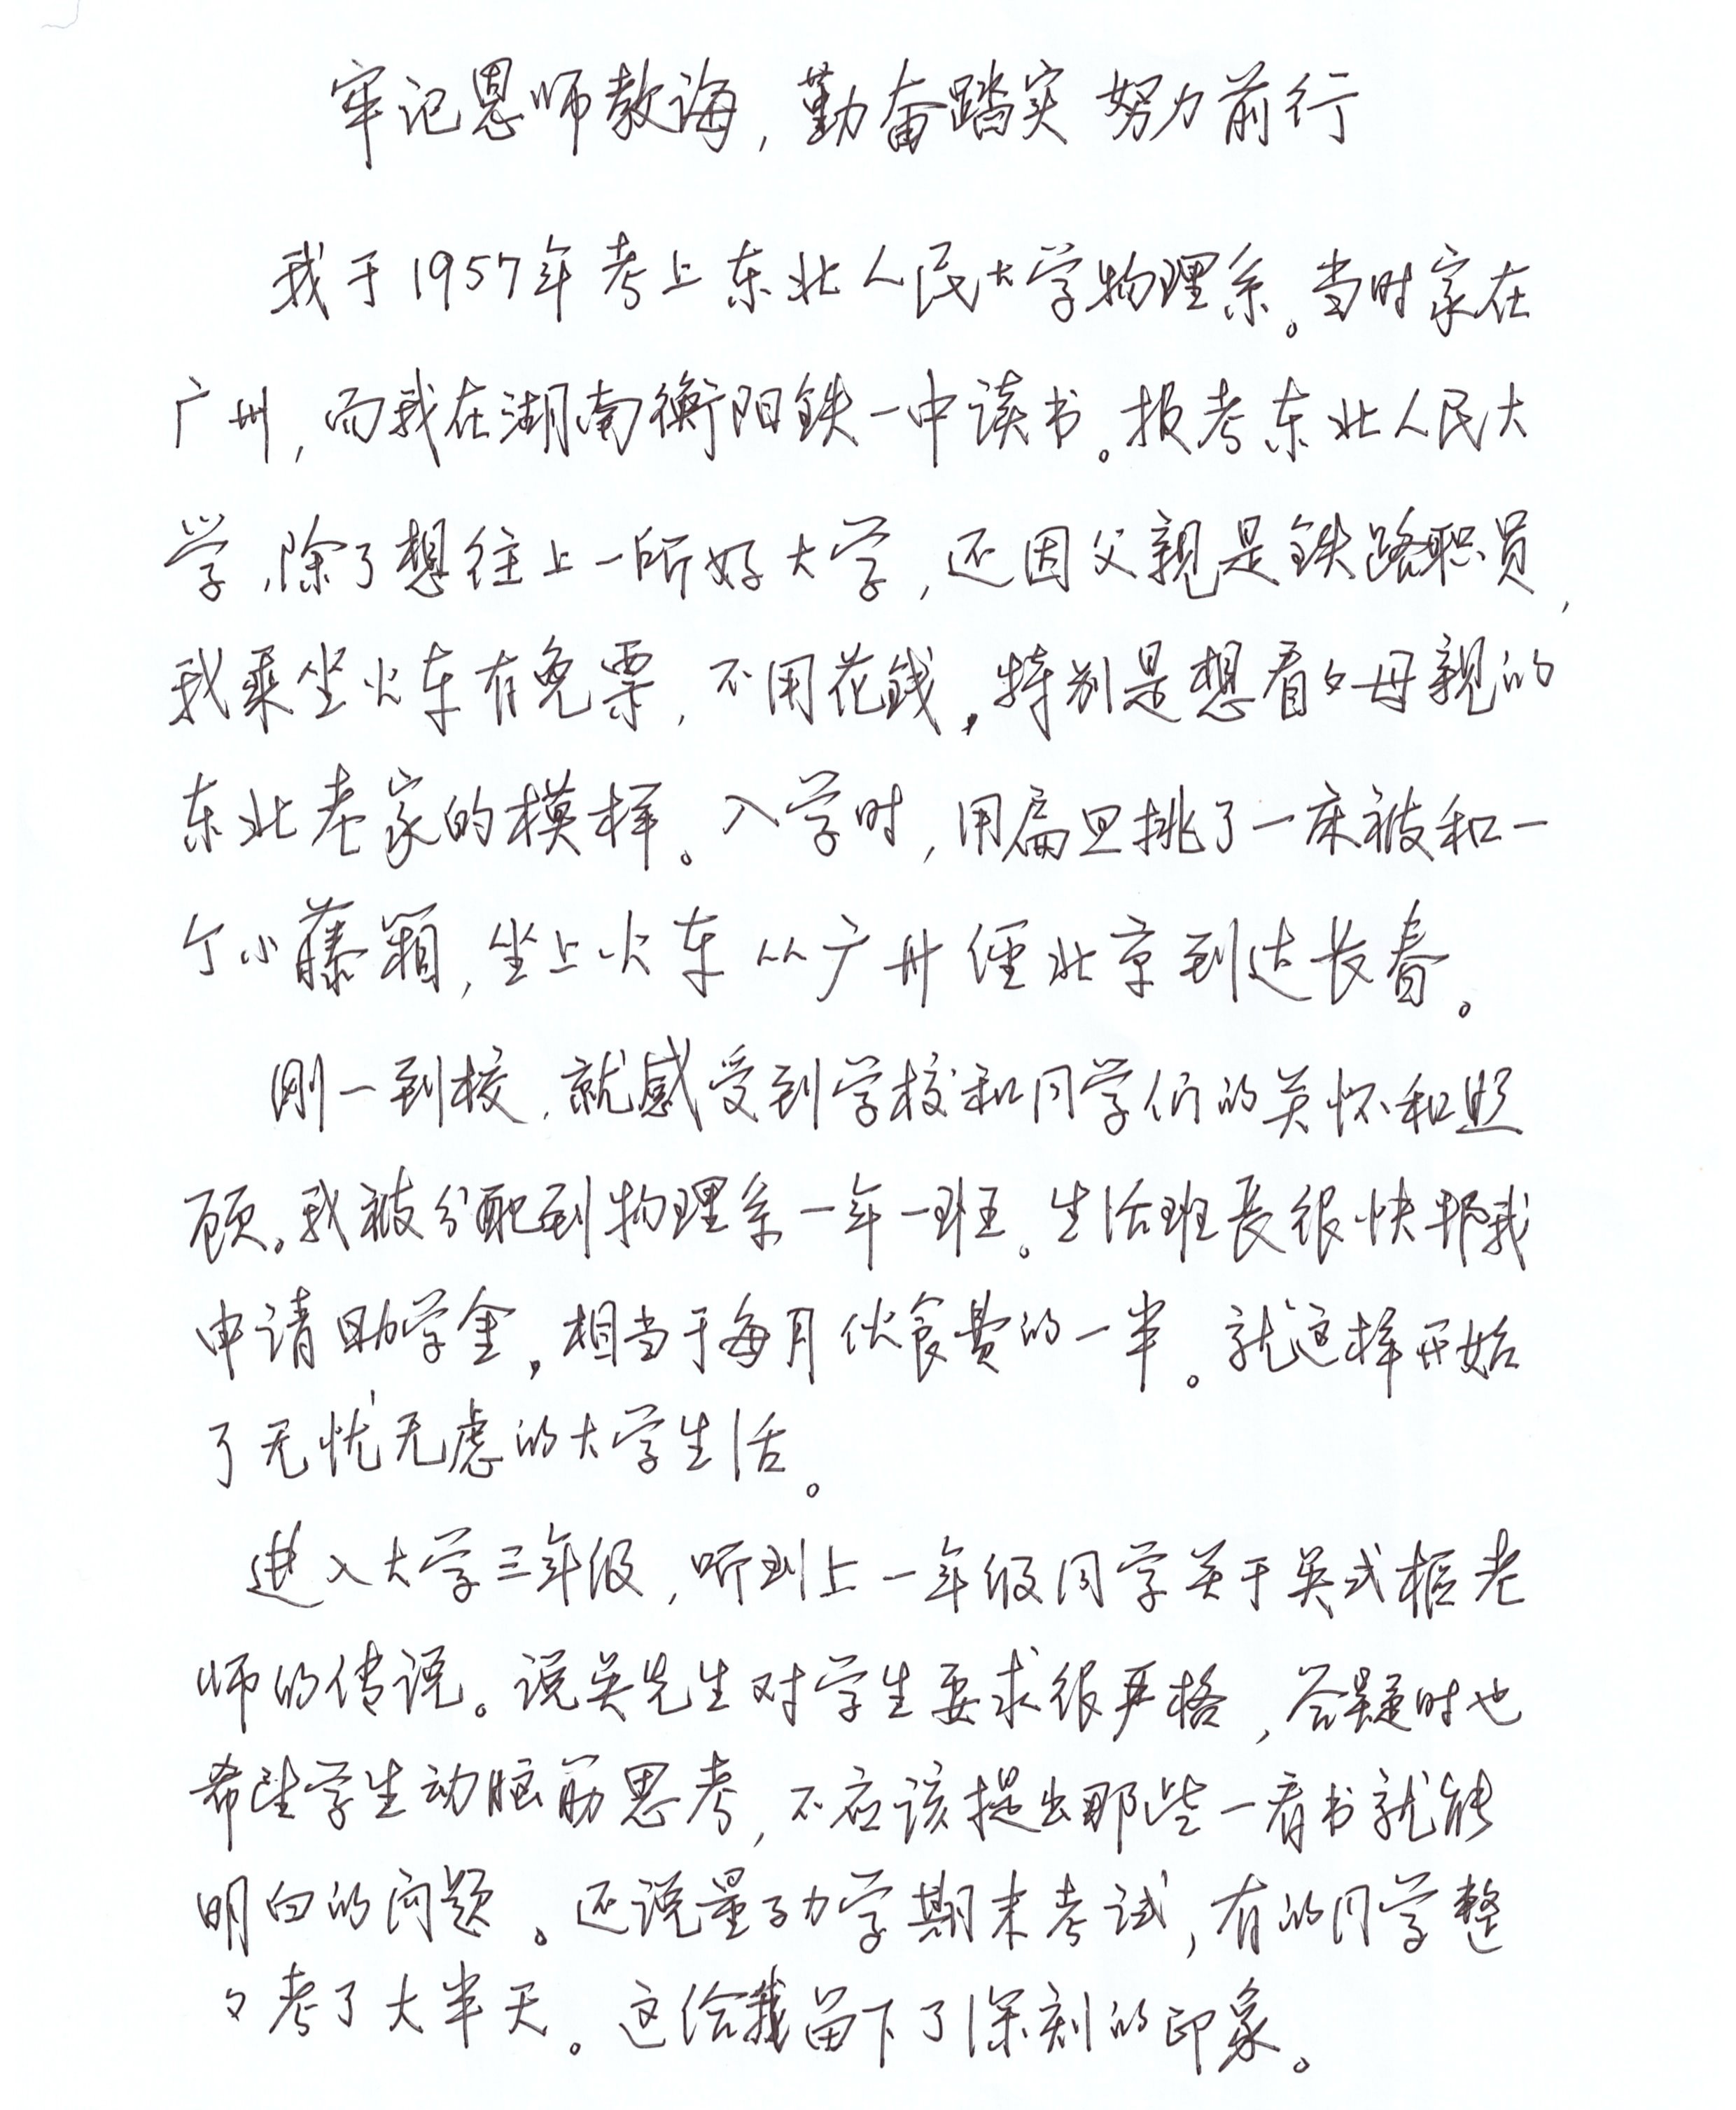 牢记恩师教诲，勤奋踏实 努力前行
我于1957年考上东北人民大学物理系。当时家在
广州，而我在湖南衡阳铁一中读书。报考东北人民大
学，除了想往上一所好大学，还因父親是铁路职员，
我乘坐火车有免票，不用花钱。特别是想看々母親的
东北老家的模样。入学时，用扁担挑了一床被和一
个小藤箱，坐上火车从广州经北京到达长春。
刚一到校，就感受到学校和同学们的关怀和照
顾。我被分配到物理系一年一班。生活班长很快帮我
申请助学金，相当于每月伙食费的一半。就这样开始
了无忧无虑的大学生活。
进入大学三年级，听到上一年级同学关于吴式枢老
师的传说。说吴先生对学生要求很严格，答疑时也
希望学生动脑筋思考，不应该提出那些一看书就能
明白的问题。还说量子力学期末考试，有的同学整
々考了大半天。这给我留下了深刻的印象。